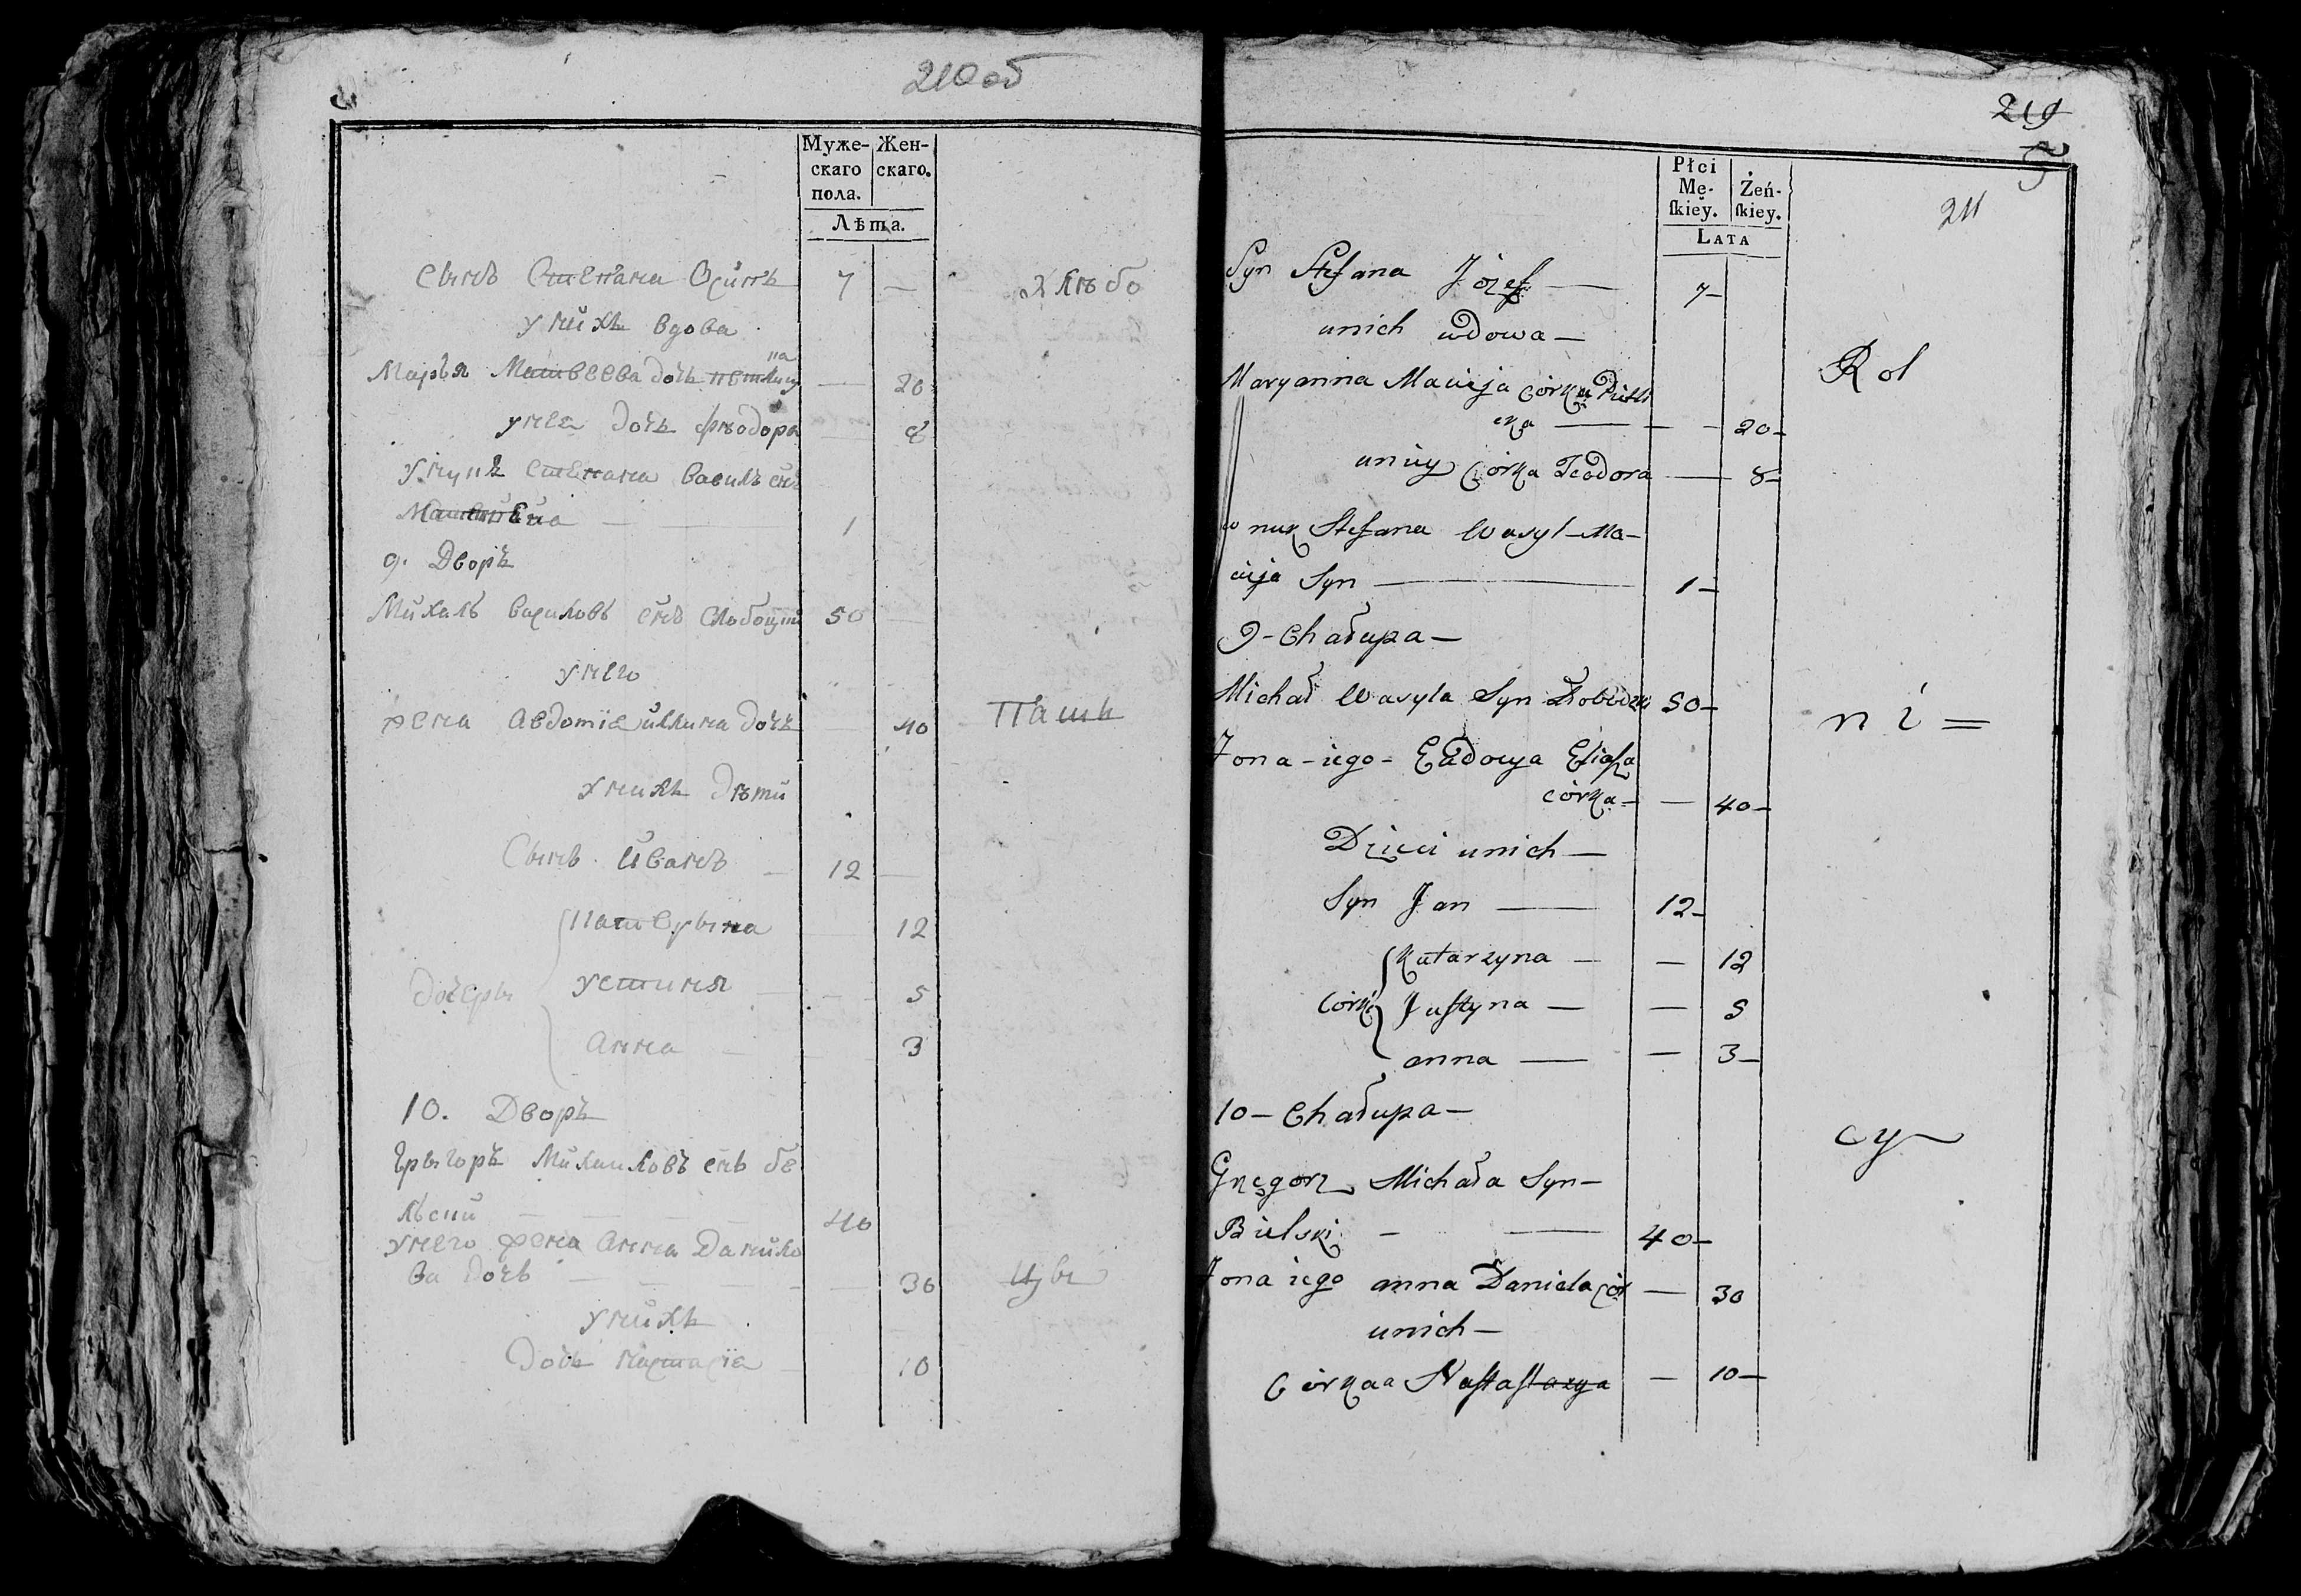 210 об
Муже-
скаго
пола.
Жен-
скаго.
Лѣта.
Сынъ Степана Осипъ 7 —
Хлѣбо
у нихъ вдова
Марья Матвеева дочь петлиц
ка
— 20
у нея дочь Фѣодора — 8
Унукъ Степана Василъ снъ
Матвѣя — 1
9. Дворъ
Михалъ Василовъ снъ Слободзки 50 —
у него
жена Авдотіа Илкина дочъ — 40
Пашъ
У нихъ дѣти
Сынъ Иванъ — 12 —
Катерына — 12
дочеры Устиня — 5
Анна — 3
10. Дворъ
Грыгоръ Михаиловъ снъ бе
льски — — — 40
у него жена Анна Данило
ва дочъ — — — 30
Цы
у нихъ
Дочъ Настасіа — 10
219
211
Płci
Mę-
ſkiey.
Żeń-
ſkiey.
LATA
Syn Stefana Józef — 7 —
unich wdowa —
Rol
Maryanna Macieja córka Pietli
cka — — 20 —
uniey Córka Teodora — 8 —
wnuk Stefana Wasyl — Ma —
cieja Syn — 1 —
9 — Chałupa —
Michał Wasyla Syn Słobodzki 50 —
ni =
Żona — iego — Eudocya Eliaſza
córka — — 40 —
Dzieci unich —
Syn Jan — 12 —
Katarzyna — — 12
Córki Juſtyna — — 5
anna — — 3 —
10 — Chałupa —
cy
Grzegorz Michała Syn —
Bielski — — 40 —
Żona iego anna Daniela cór — 30
unich —
Córkaa Naſtaſtazya — 10 —